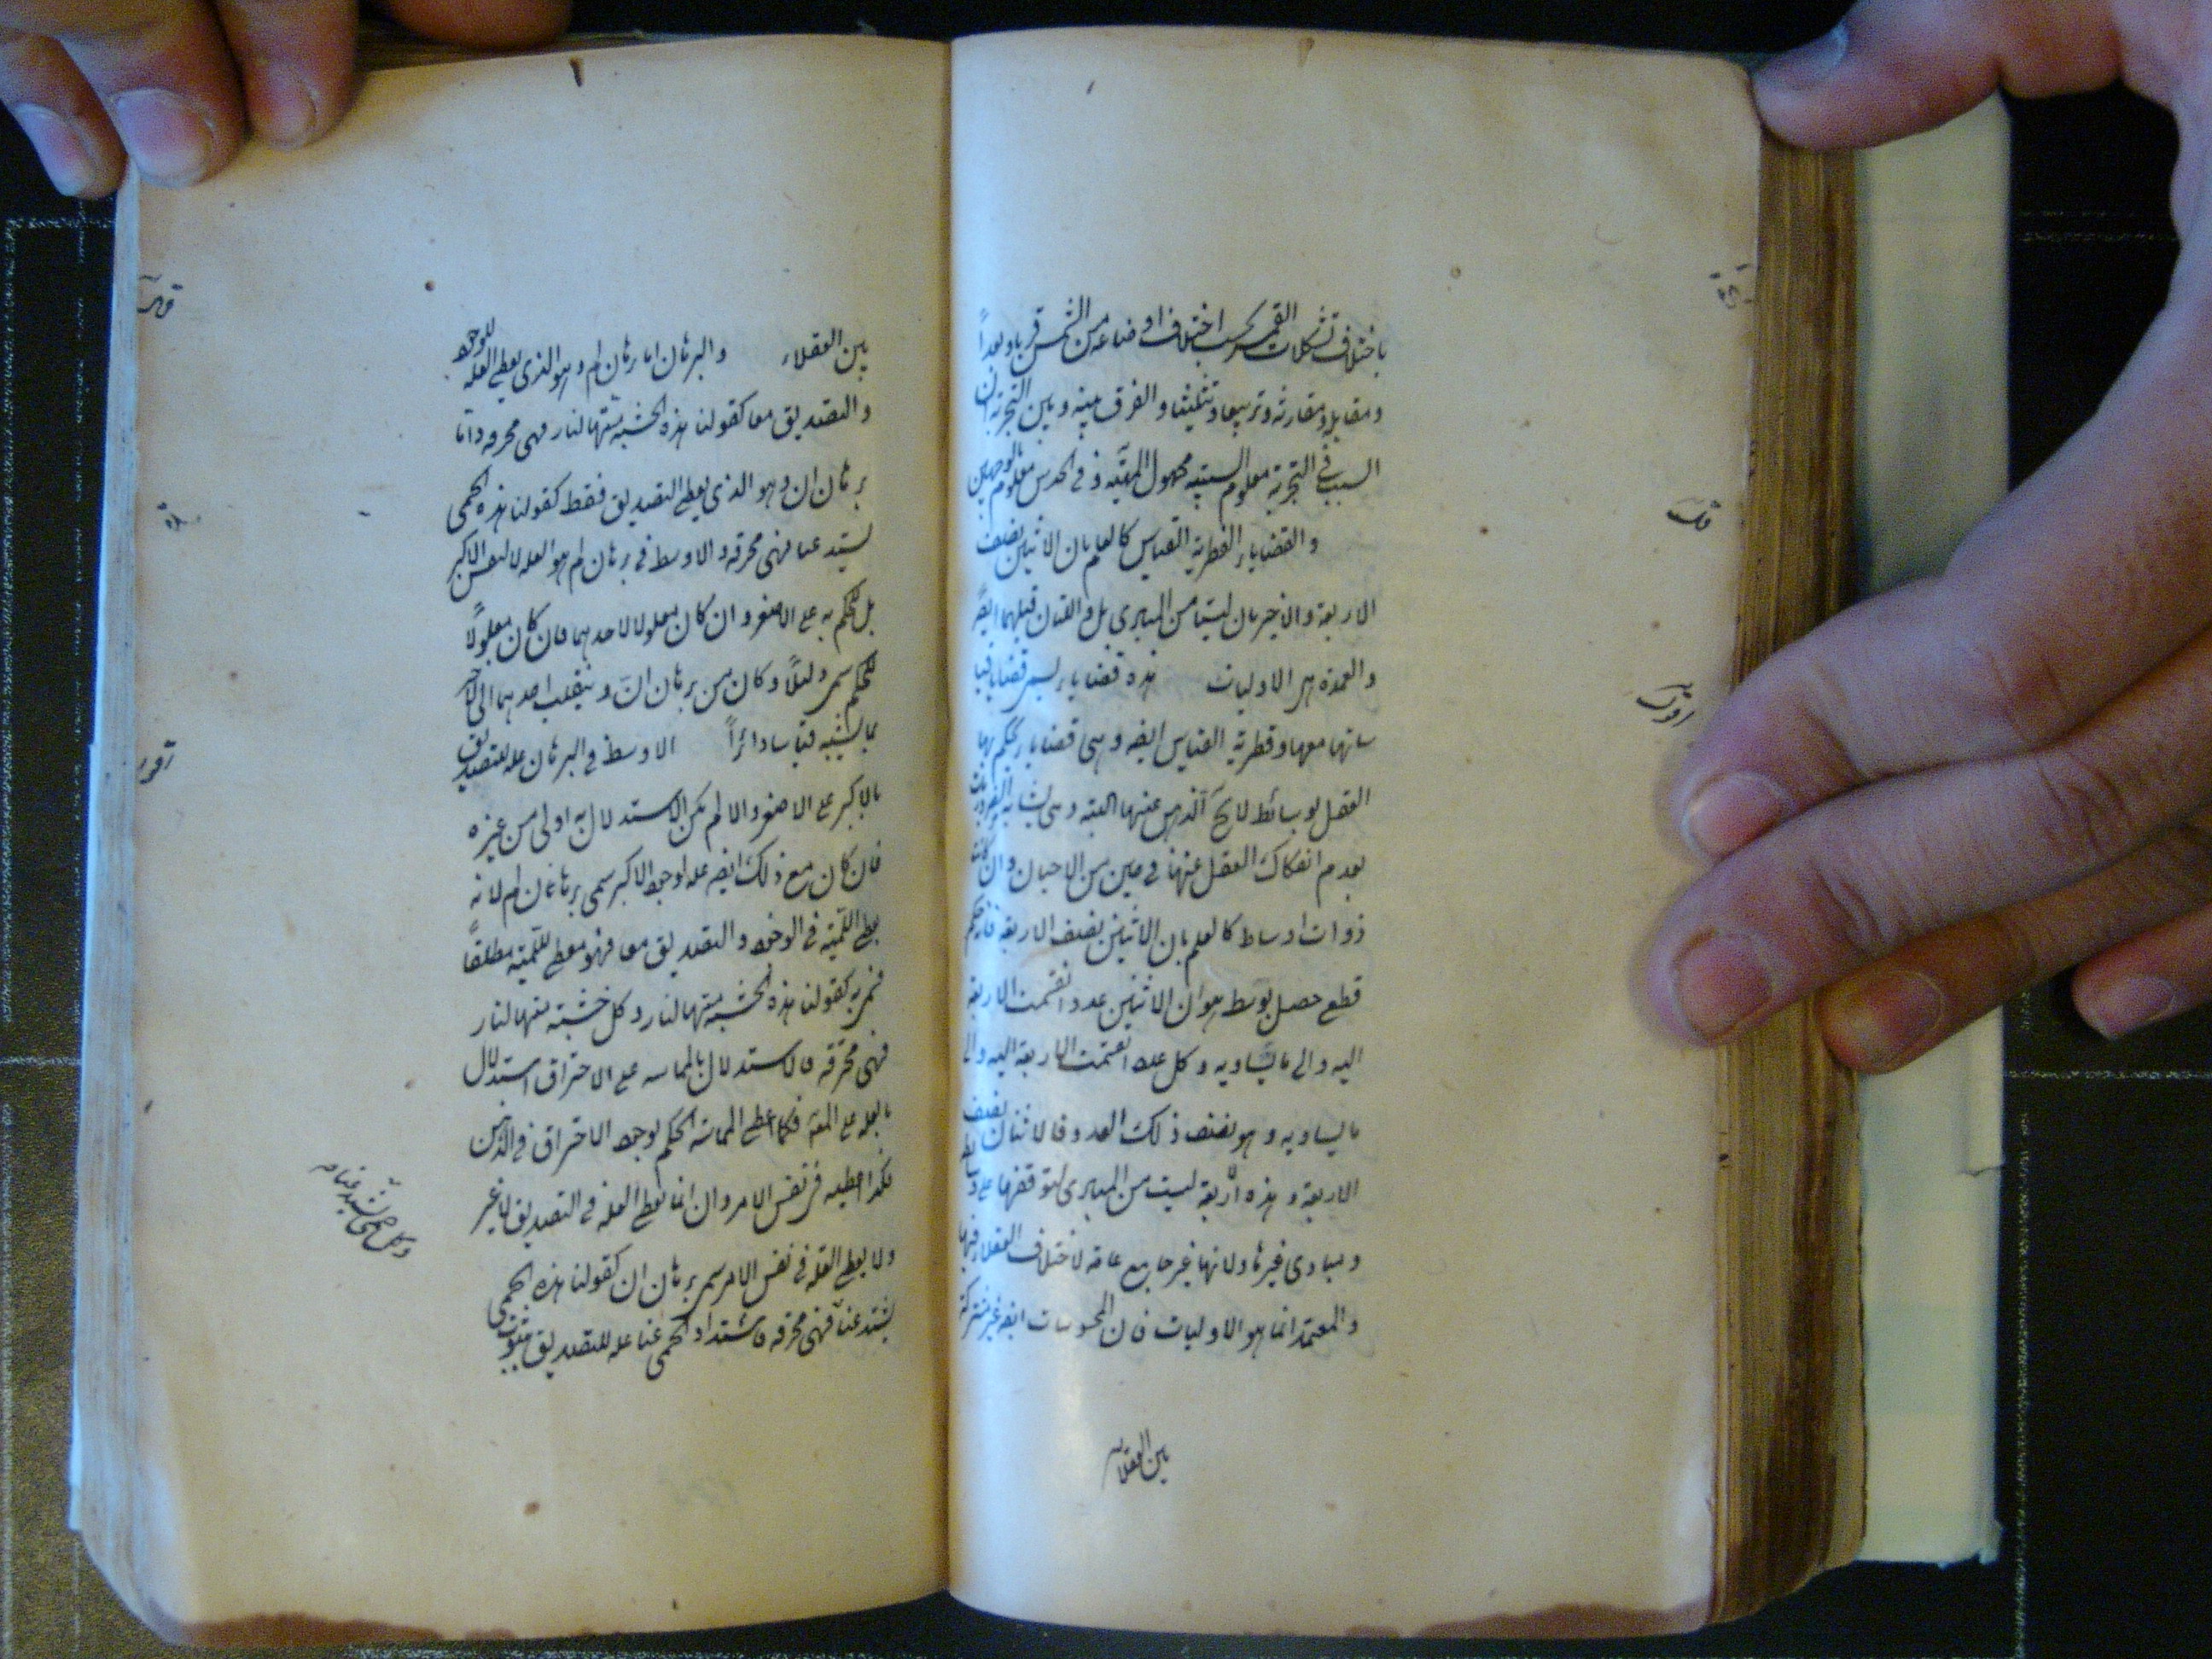 باختلاف تشكلات القمر بحسب اختلاف اوضاعه من الشمس قربا وبعداً
ومقابلة ومقارنة وتربيعا وتثليثا والفرق بينه وبين التجربة ان
السبب فى التجربة معلوم السببية مجهول المهيّة وفى الحدس معلوم بالوجهين
والقضايا الفطرية القياس كالعلم بان الاثنين نصف
الاربعة والاخيرتان ليستا من المبادى بل واللتان قبلهما ايضً
والعمدة هى الاوليات هذه قضايا يسمى قضايا قيا
ساتها معها وفطرية القياس ايضه وهى قضايا يحكم بها
العقل بوسائط لا يخ الذهن عنها البتة وهى يشابه الضروريات
لعدم انفكاك العقل عنها فى حين من الاحيان وان كانت
ذوات اوساط كالعلم بان الاثنين نصف الاربعة فانه حكم
قطع حصل بوسط هو ان الاثنين عدد انقسمت الاربعة
اليه والى ما يساويه وكل عدد انقسمت الاربعة اليه والى
ما يساويه وهو نصف ذلك العدد فالاثنان نصف
الاربعة وهذه الاربعة ليست من المبادى لتوقفها على وسائط
ومبادى غيرها ولانها غير جامع عامة لاختلاف العقلاء فيها
والمعتمد انما هو الاوليات فان المحسوسات ايضه غير مشتركة
بين العقلاء
قلت
اقول
بين العقلاء والبرهان اما برهان لم وهو الذى يعطى العلة للوجود
والتصديق معا كقولنا هذه الخشبة مستها النار فهى محرقه واما
برهان ان وهو الذى يعطى التصديق فقط كقولنا هذه الحمى
تشتد غبا فهى محرقه والاوسط فى برهان لم هو العلة لا لنفس الاكبر
بل للحكم به على الاصغر وان كان معلولا لاحدهما فان كان معلولاً
للحكم سمى دليلاً وكان من برهان انّ وينقلب احدهما الى الاخر
بما يشبه قياسا دائراً الاوسط فى البرهان علة للتصديق
بالاكبر على الاصغر والا لم يكن الاستدلال به اولى من غيره
فان كان مع ذلك ايضه علة لوجود الاكبر سمى برهان لم لانه
يعطى اللّمية فى الوجود والتصديق معا فهو معطى للّمية مطلقاً
فسمى به كقولنا هذه الخشبة مستها النار وكل خشبة مستها النار
فهى محترقه فالاستدلال بالمماسه على الاحتراق استدلال
بالعلة على المعلول فكما اعطى المماسة الحكم بوجود الاحتراق فى الذهن
فكذا اعطيه فى نفس الامر وان انما يعطى العلة فى التصديق لا غير
ولا يعطى العلة فى نفس الامر سمى برهان ان كقولنا هذه الحمى
تشتد غبّا فهى محرقه فاشتداد الحمى غبا علة للتصديق بثبوت
قلت
اقول
وكل حمى تشتد غبا